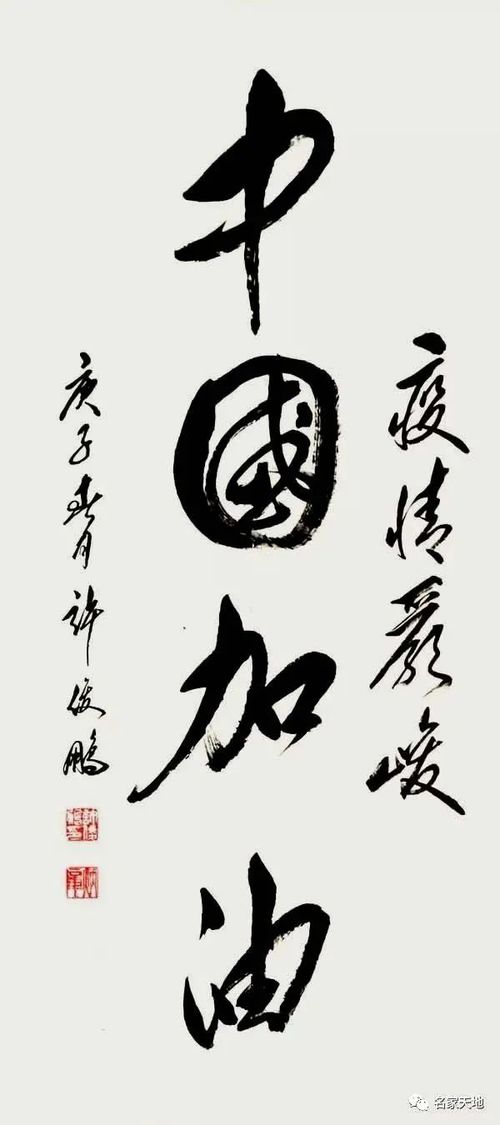 疫情嚴峻
中國加油
庚子春月許俊鵬
名家天地